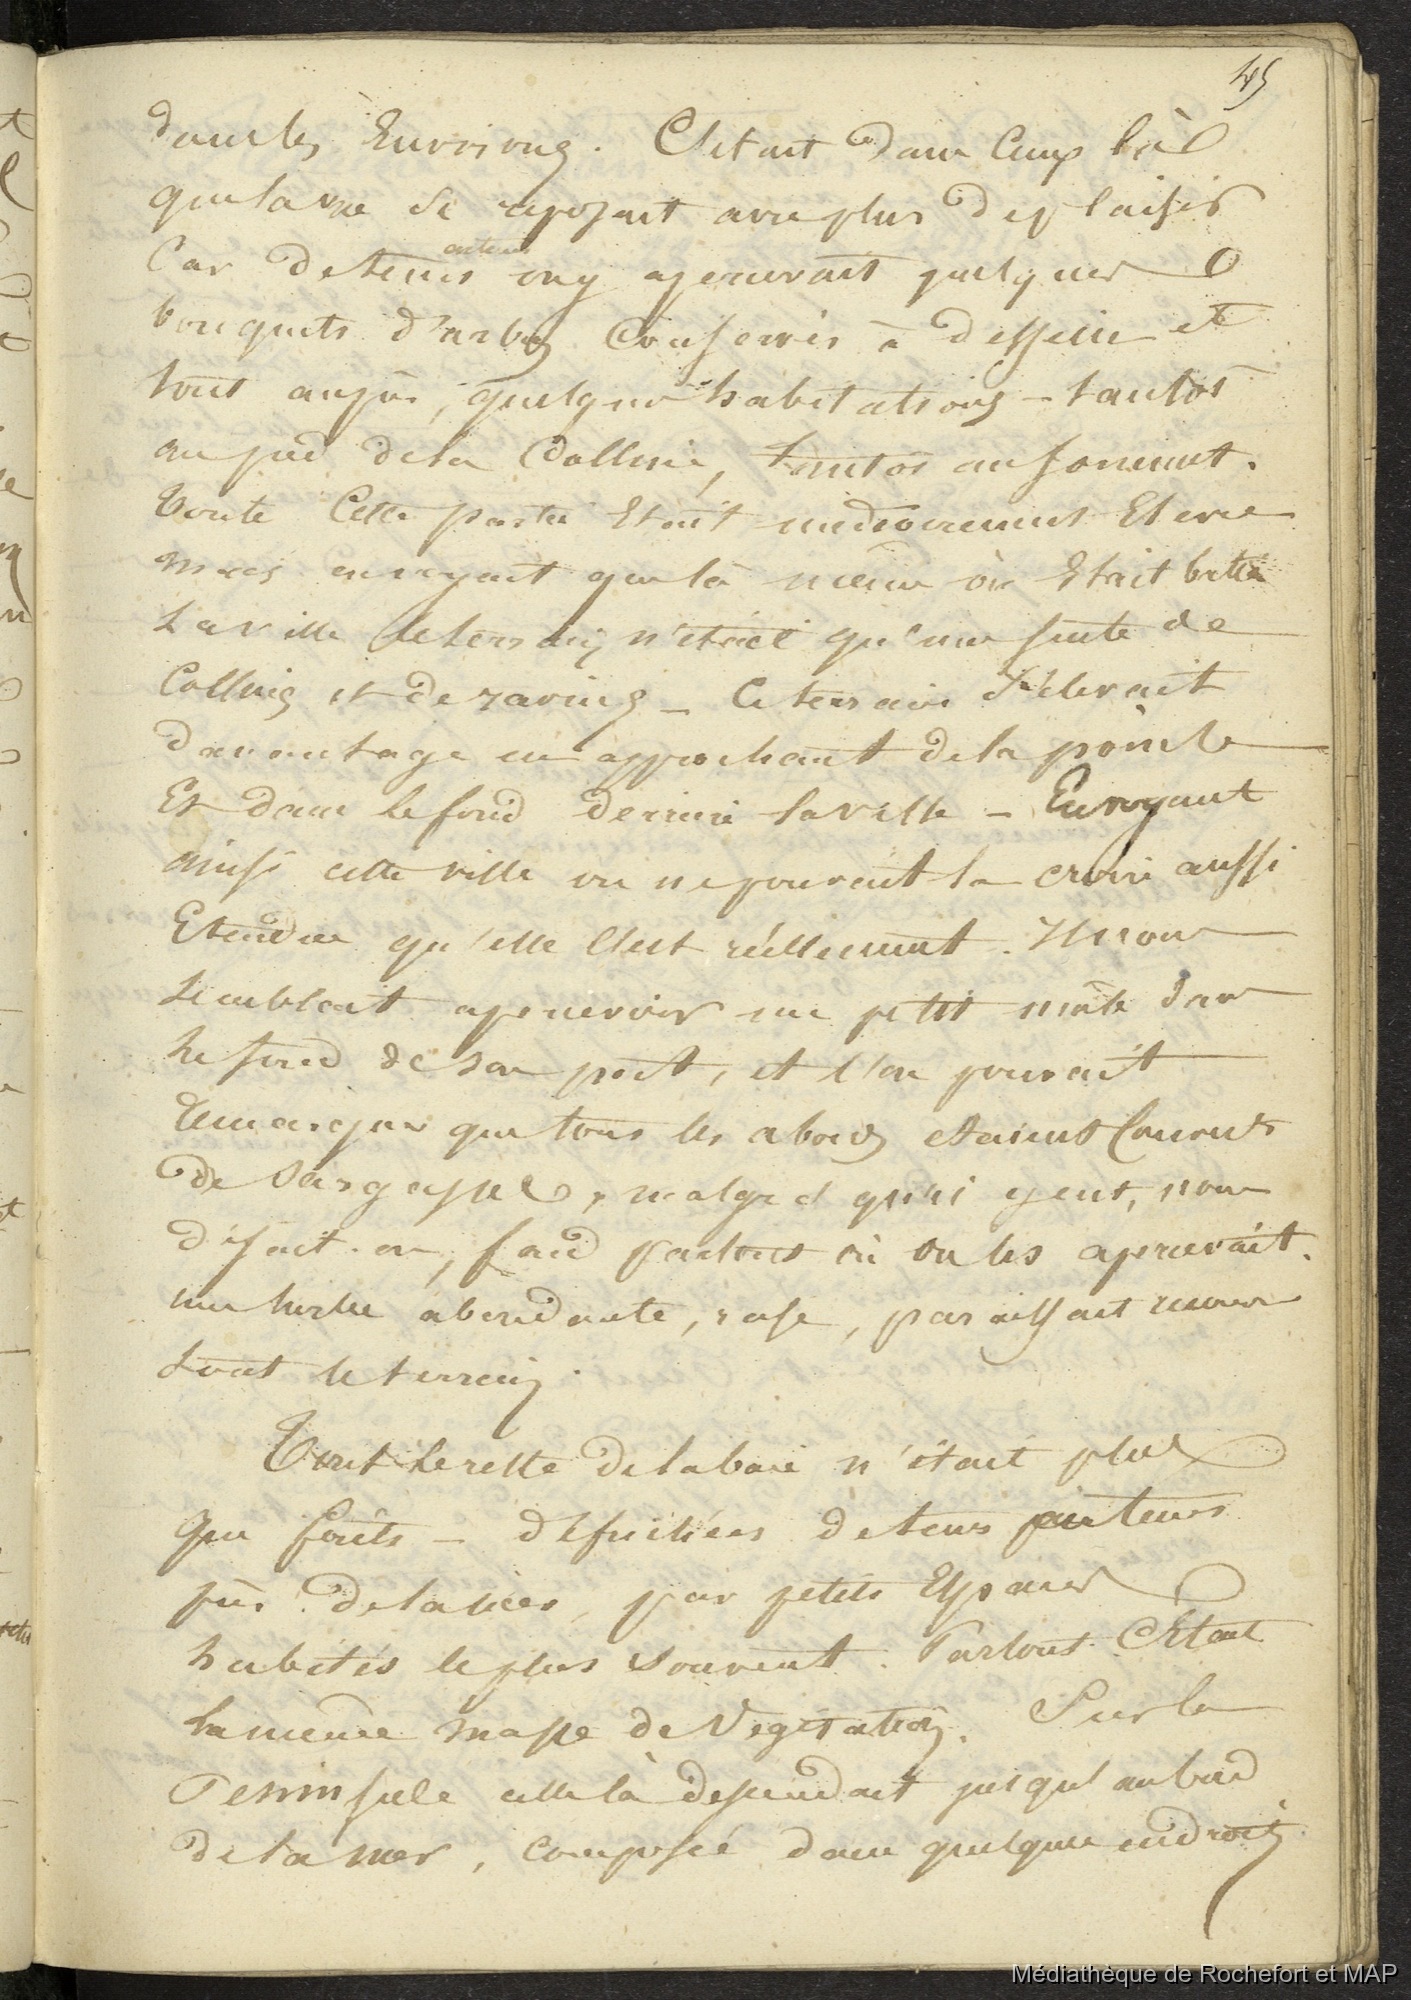 45
dans les Environs. C'était dans Ceux là
que la vue se reposait avec plus de plaisir
Car de tems autems on y apercevait quelques
bouquets d'arbres Conservés à dessein et
tout auprès, quelques habitations - tantôt
au pied de la Colline, tantôt au sommet.
Toute Cette partie Etait médiocrement Elevée
mais en voyant que là même où Etait batie
La ville le terrain n'était qu'une suite de
Collines et de ravins - Ce terrain s'élevait
davantage en approchant de la pointe
Et dans le fond derrière la ville - En voyant
ainsi cette ville on ne pouvait la croire aussi
Etendue qu'elle l'est réellement. Il nous
semblait apercevoir un petit môle dans
le fond de son port, et l'on pouvait
Remarquer que tous les abords etaient Couverts
de Sargasses, malgré qu'il y eut, nous
disait-on, fond partout où on les apercevait.
une herbe abondante, rase, paraissait couvrir
tout le terrain.
Tout le reste de la baie n'était plus
que forêts - défrichées de tems en tems
près de la mer, par petits Espaces
habités le plus souvent. Partout C'était
la même masse de Végétation. Sur la
Peninsule celle là descendait jusqu'au bord
de la mer, composée dans quelques endroits
Médiathèque de Rochefort et MAP